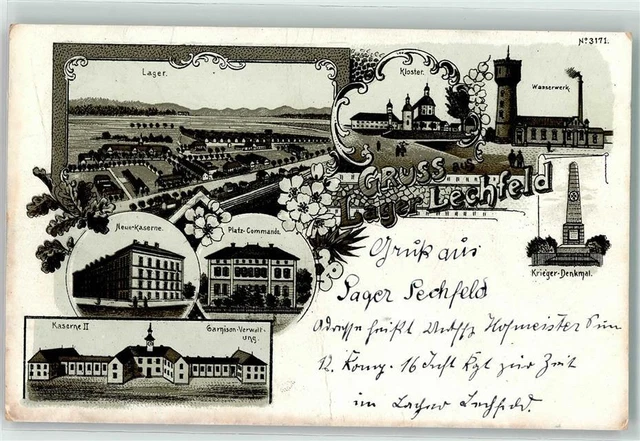 No 3171.
Lager.
Kloster.
Wasserwerk.
GRUSS aus
Lager Lechfeld
Neue-Kaserne.
Platz-Commando.
Krieger-Denkmal.
Kaserne II
Garnison-Verwalt-
ung.
Gruß aus
Lager Lechfeld
Adresse heißt Hofmeister
12. Komp. 16 Inft Rgt zur Zeit
im Lager Lechfeld.